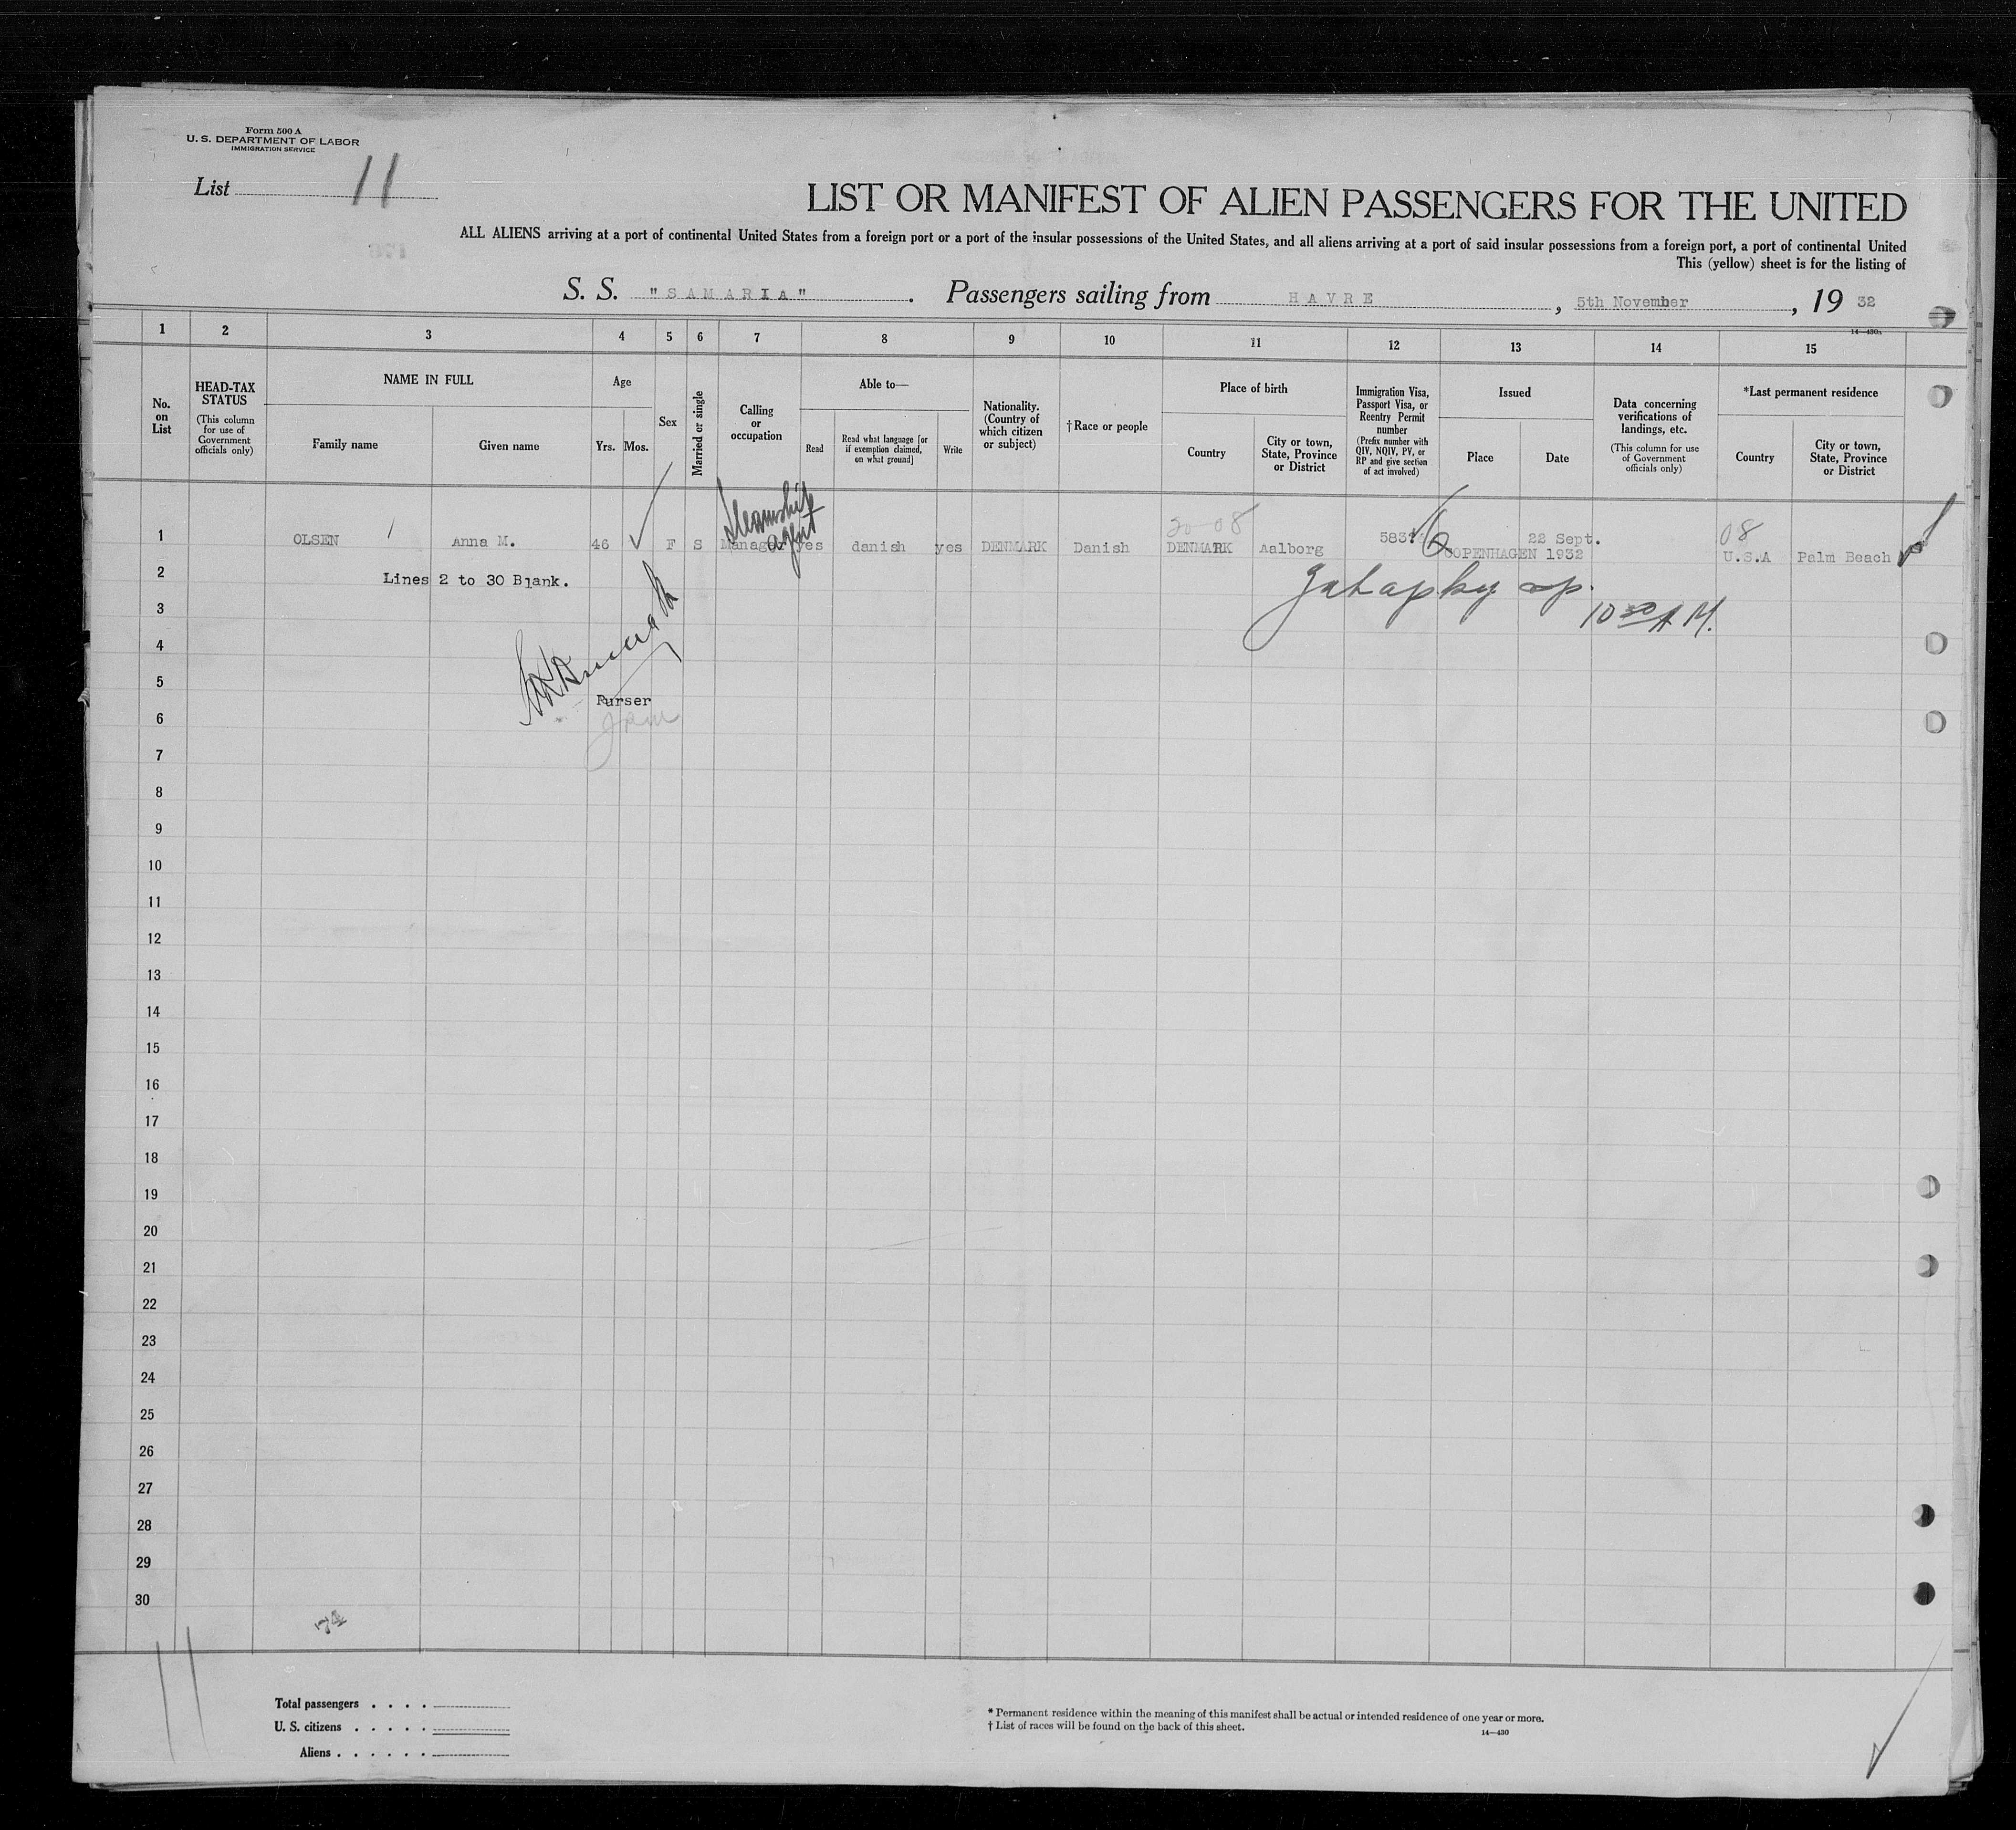 Form 500 A
U. S. DEPARTMENT OF LABOR
IMMIGRATION SERVICE
List 11
LIST OR MANIFEST OF ALIEN PASSENGERS FOR THE UNITED
ALL ALIENS arriving at a port of continental United States from a foreign port or a port of the insular possessions of the United States, and all aliens arriving at a port of said insular possessions from a foreign port, a port of continental United
This (yellow) sheet is for the listing of
S. S. "SAMARIA". Passengers sailing from HAVRE, 5th November, 19 32
14—430a
1 2 3 4 5 6 7 8 9 10 11 12 13 14 15
No. on List
HEAD-TAX STATUS (This column for use of Government officials only)
NAME IN FULL
Family name
Given name
Age
Yrs. Mos.
Sex
Married or single
Calling or occupation
Able to—
Read
Read what language [or if exemption claimed, on what ground]
Write
Nationality. (Country of which citizen or subject)
† Race or people
Place of birth
Country
City or town, State, Province or District
Immigration Visa, Passport Visa, or Reentry Permit number (Prefix number with QIV, NQIV, PV, or RP and give section of act involved)
Issued
Place
Date
Data concerning verifications of landings, etc. (This column for use of Government officials only)
*Last permanent residence
Country
City or town, State, Province or District
Steamship agent
20-08
08
1 OLSEN Anna M. 46 F S Manager yes danish yes DENMARK Danish DENMARK Aalborg COPENHAGEN 22 Sept. 1932 U.S.A Palm Beach
2 Lines 2 to 30 Blank.
10 30 A M.
3
4
5
Purser
6
7
8
9
10
11
12
13
14
15
16
17
18
19
20
21
22
23
24
25
26
27
28
29
30
74
11
Total passengers . . . .
U. S. citizens . . . . .
Aliens . . . . . .
* Permanent residence within the meaning of this manifest shall be actual or intended residence of one year or more.
† List of races will be found on the back of this sheet.
14—430